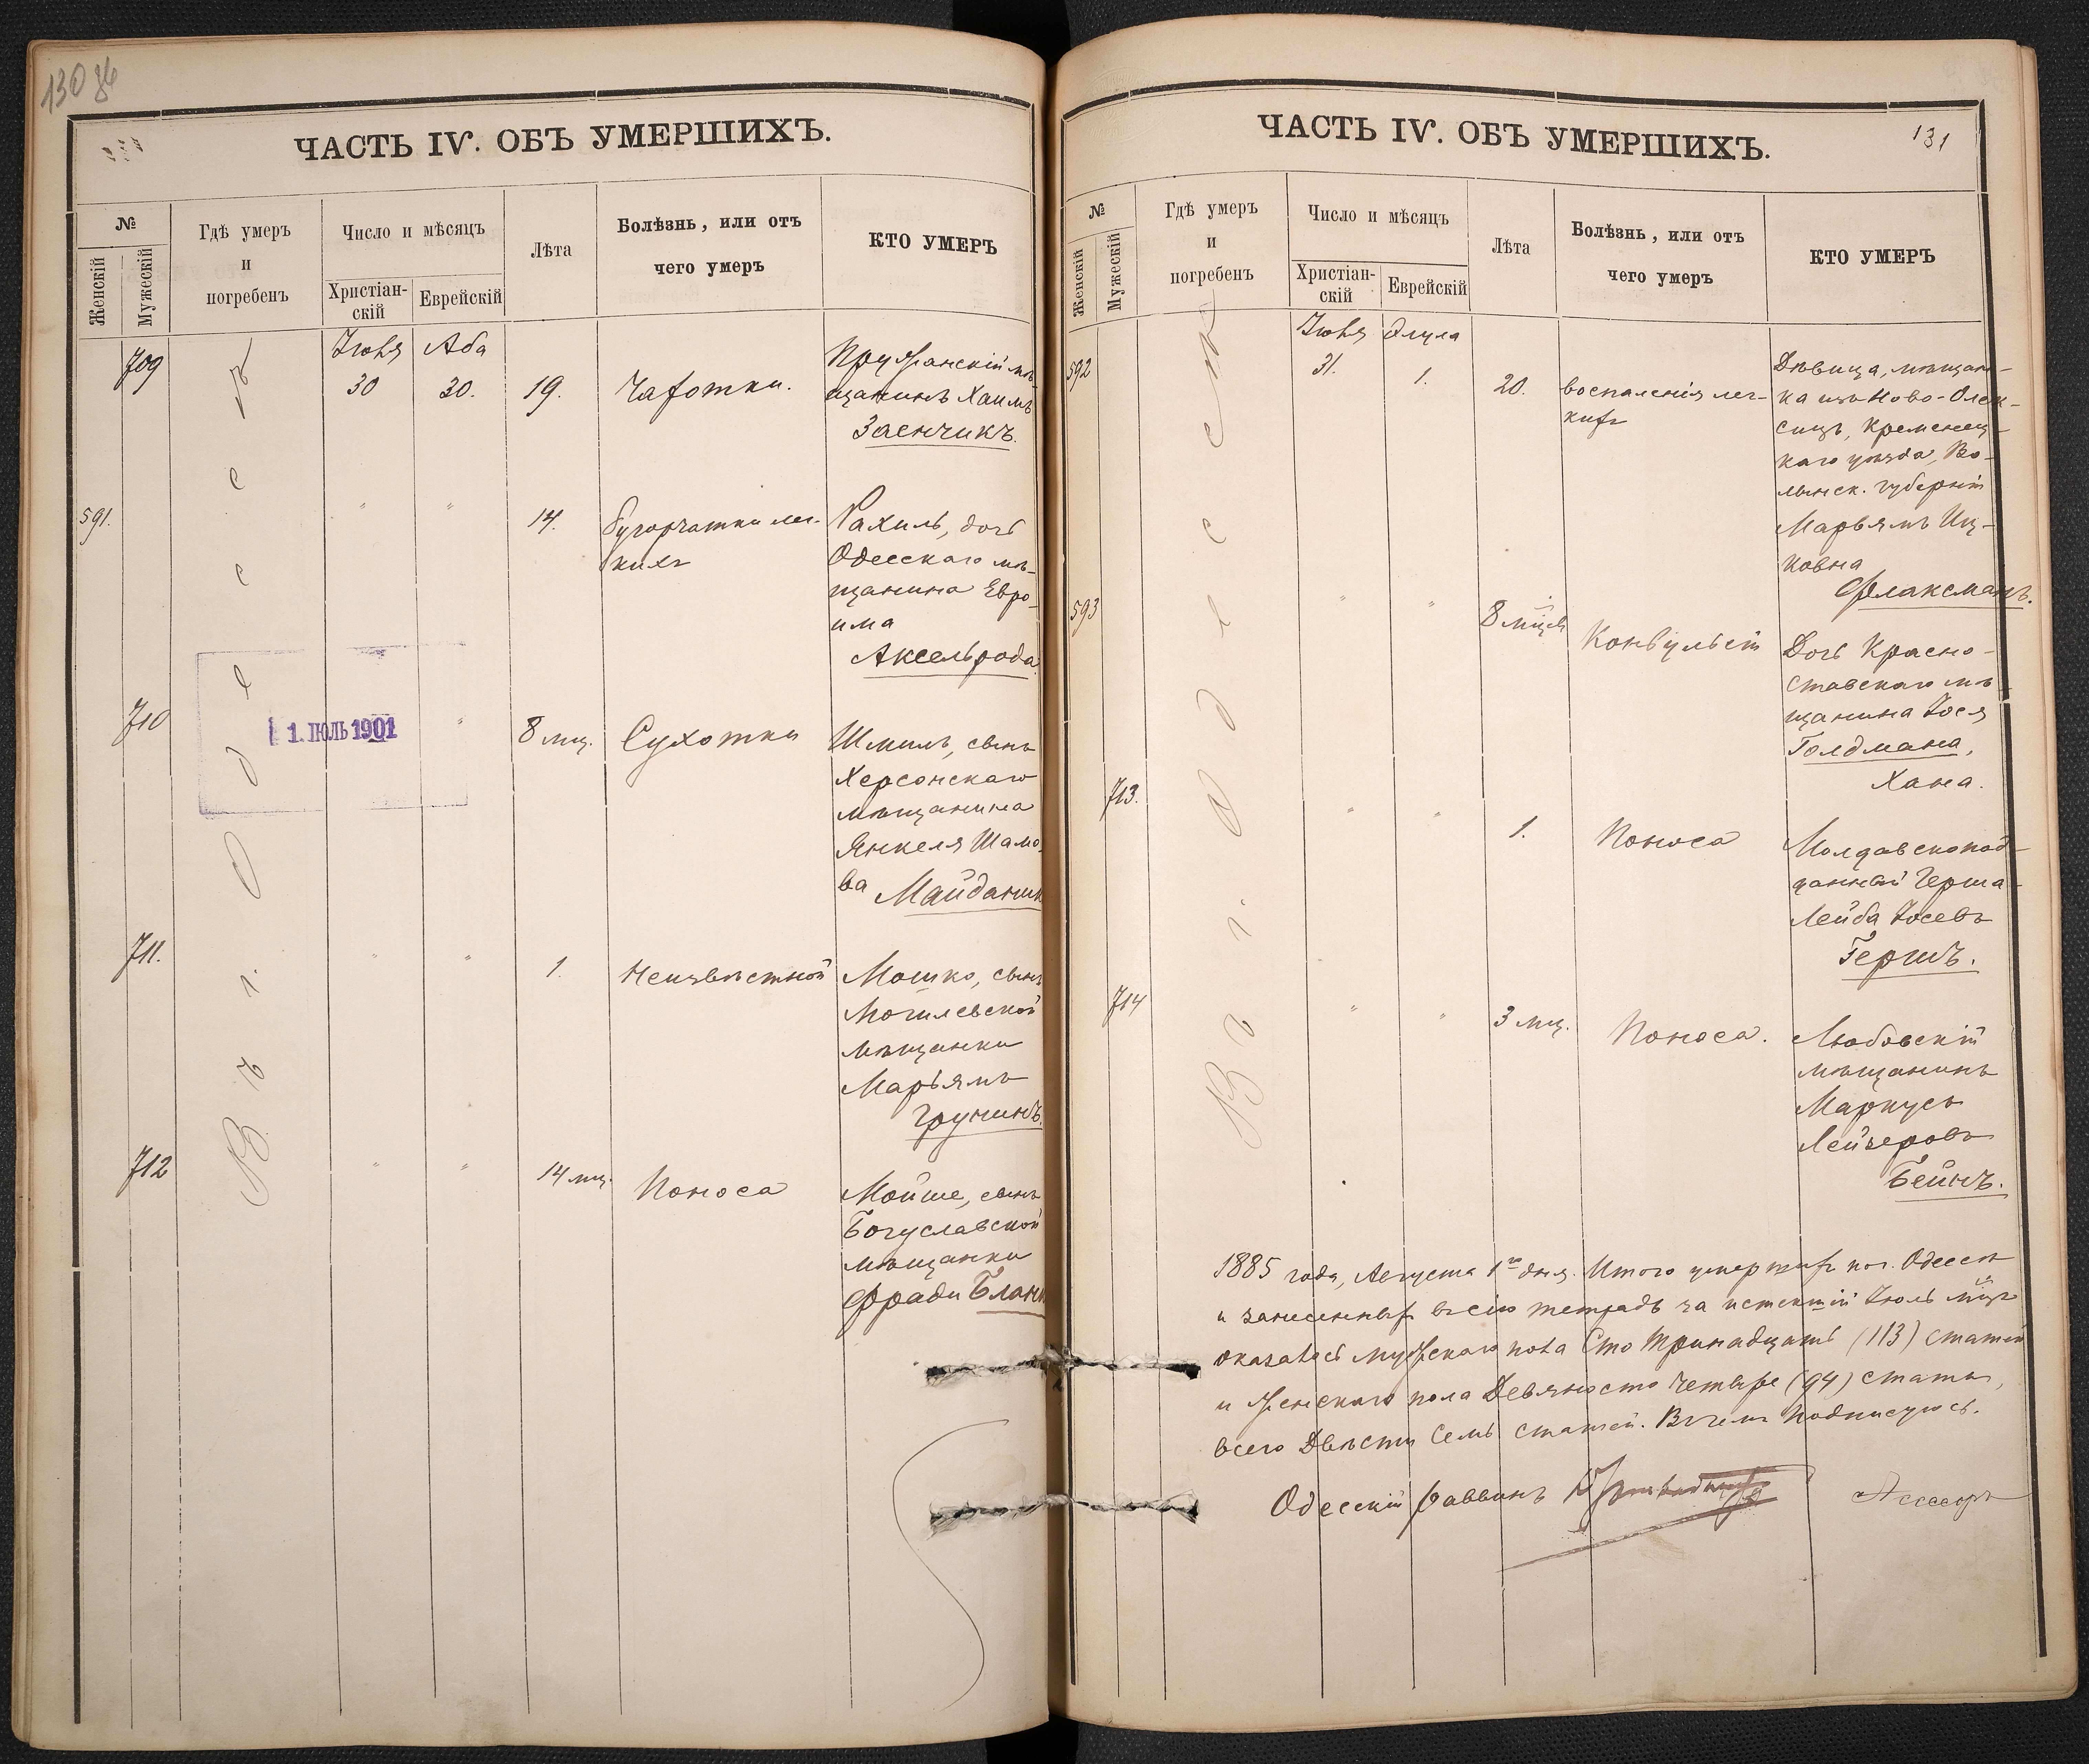 130 об
ЧАСТЬ IV. ОБЪ УМЕРШИХЪ.
№
Женскій
Мужескій
Гдѣ умеръ
и
погребенъ
Число и мѣсяцъ
Христіан-
скій
Еврейскій
Лѣта
Болѣзнь, или отъ
чего умеръ
КТО УМЕРЪ
Въ г. Одессѣ
709
Іюля
30
Аба
30.
19.
Чахотки.
Пружанскій мѣ-
щанинъ Хаимъ
Заенчикъ.
591.
"
"
14.
Бугорчатки лег-
кихъ
Рахиль, дочь
Одесскаго мѣ-
щанина Евро-
има
Аксельрода
710
1. ІЮЛЬ 1901
"
8 мц.
Сухотки
Шмиль, сынъ
Херсонскаго
мѣщанина
Янкеля Шамо-
ва Майданик
711.
"
"
1.
Неизвѣстной
Мошко, сынъ
Могилевской
мѣщанки
Марьямъ
Грунинъ.
712
"
"
14 мц.
Поноса
Мойше, сынъ
Богуславской
мѣщанки
Фради Бланк
131
ЧАСТЬ IV. ОБЪ УМЕРШИХЪ.
№
Женскій
Мужескій
Гдѣ умеръ
и
погребенъ
Число и мѣсяцъ
Христіан-
скій
Еврейскій
Лѣта
Болѣзнь, или отъ
чего умеръ
КТО УМЕРЪ
Въ г. Одессѣ
592
Іюля
31.
Элула
1.
20.
воспаленія лег-
кихъ
Дѣвица, мѣщан-
ка изъ Ново-Олек-
синц, Кременец-
каго уѣзда, Во-
лынск. губерніи
Марьямъ Иц-
ковна
Флаксманъ.
593
"
"
8 мцсв
Конвульсіи
Дочь Красно-
ставскаго мѣ-
щанина Іося
Голдмана,
Хана.
713.
"
"
1.
Поноса
Молдавскопод-
данный Герша-
Лейба Іосевъ
Гершъ.
714
"
"
3 мц.
Поноса.
Любовскій
мѣщанинъ
Маркусъ
Лейзеровъ
Бейнъ.
1885 года, Августа 1го дня. Итого умершихъ по г. Одессѣ
и занесенныхъ въ сію тетрадь за истекшій Іюль мцъ
оказалось мужскаго пола Сто тринадцать (113) статей
и женскаго пола Девяносто четыре (94) статьи,
всего Двѣсти семь статей. Въ чемъ подписуюсь.
Одесскій раввинъ
Ассесоръ